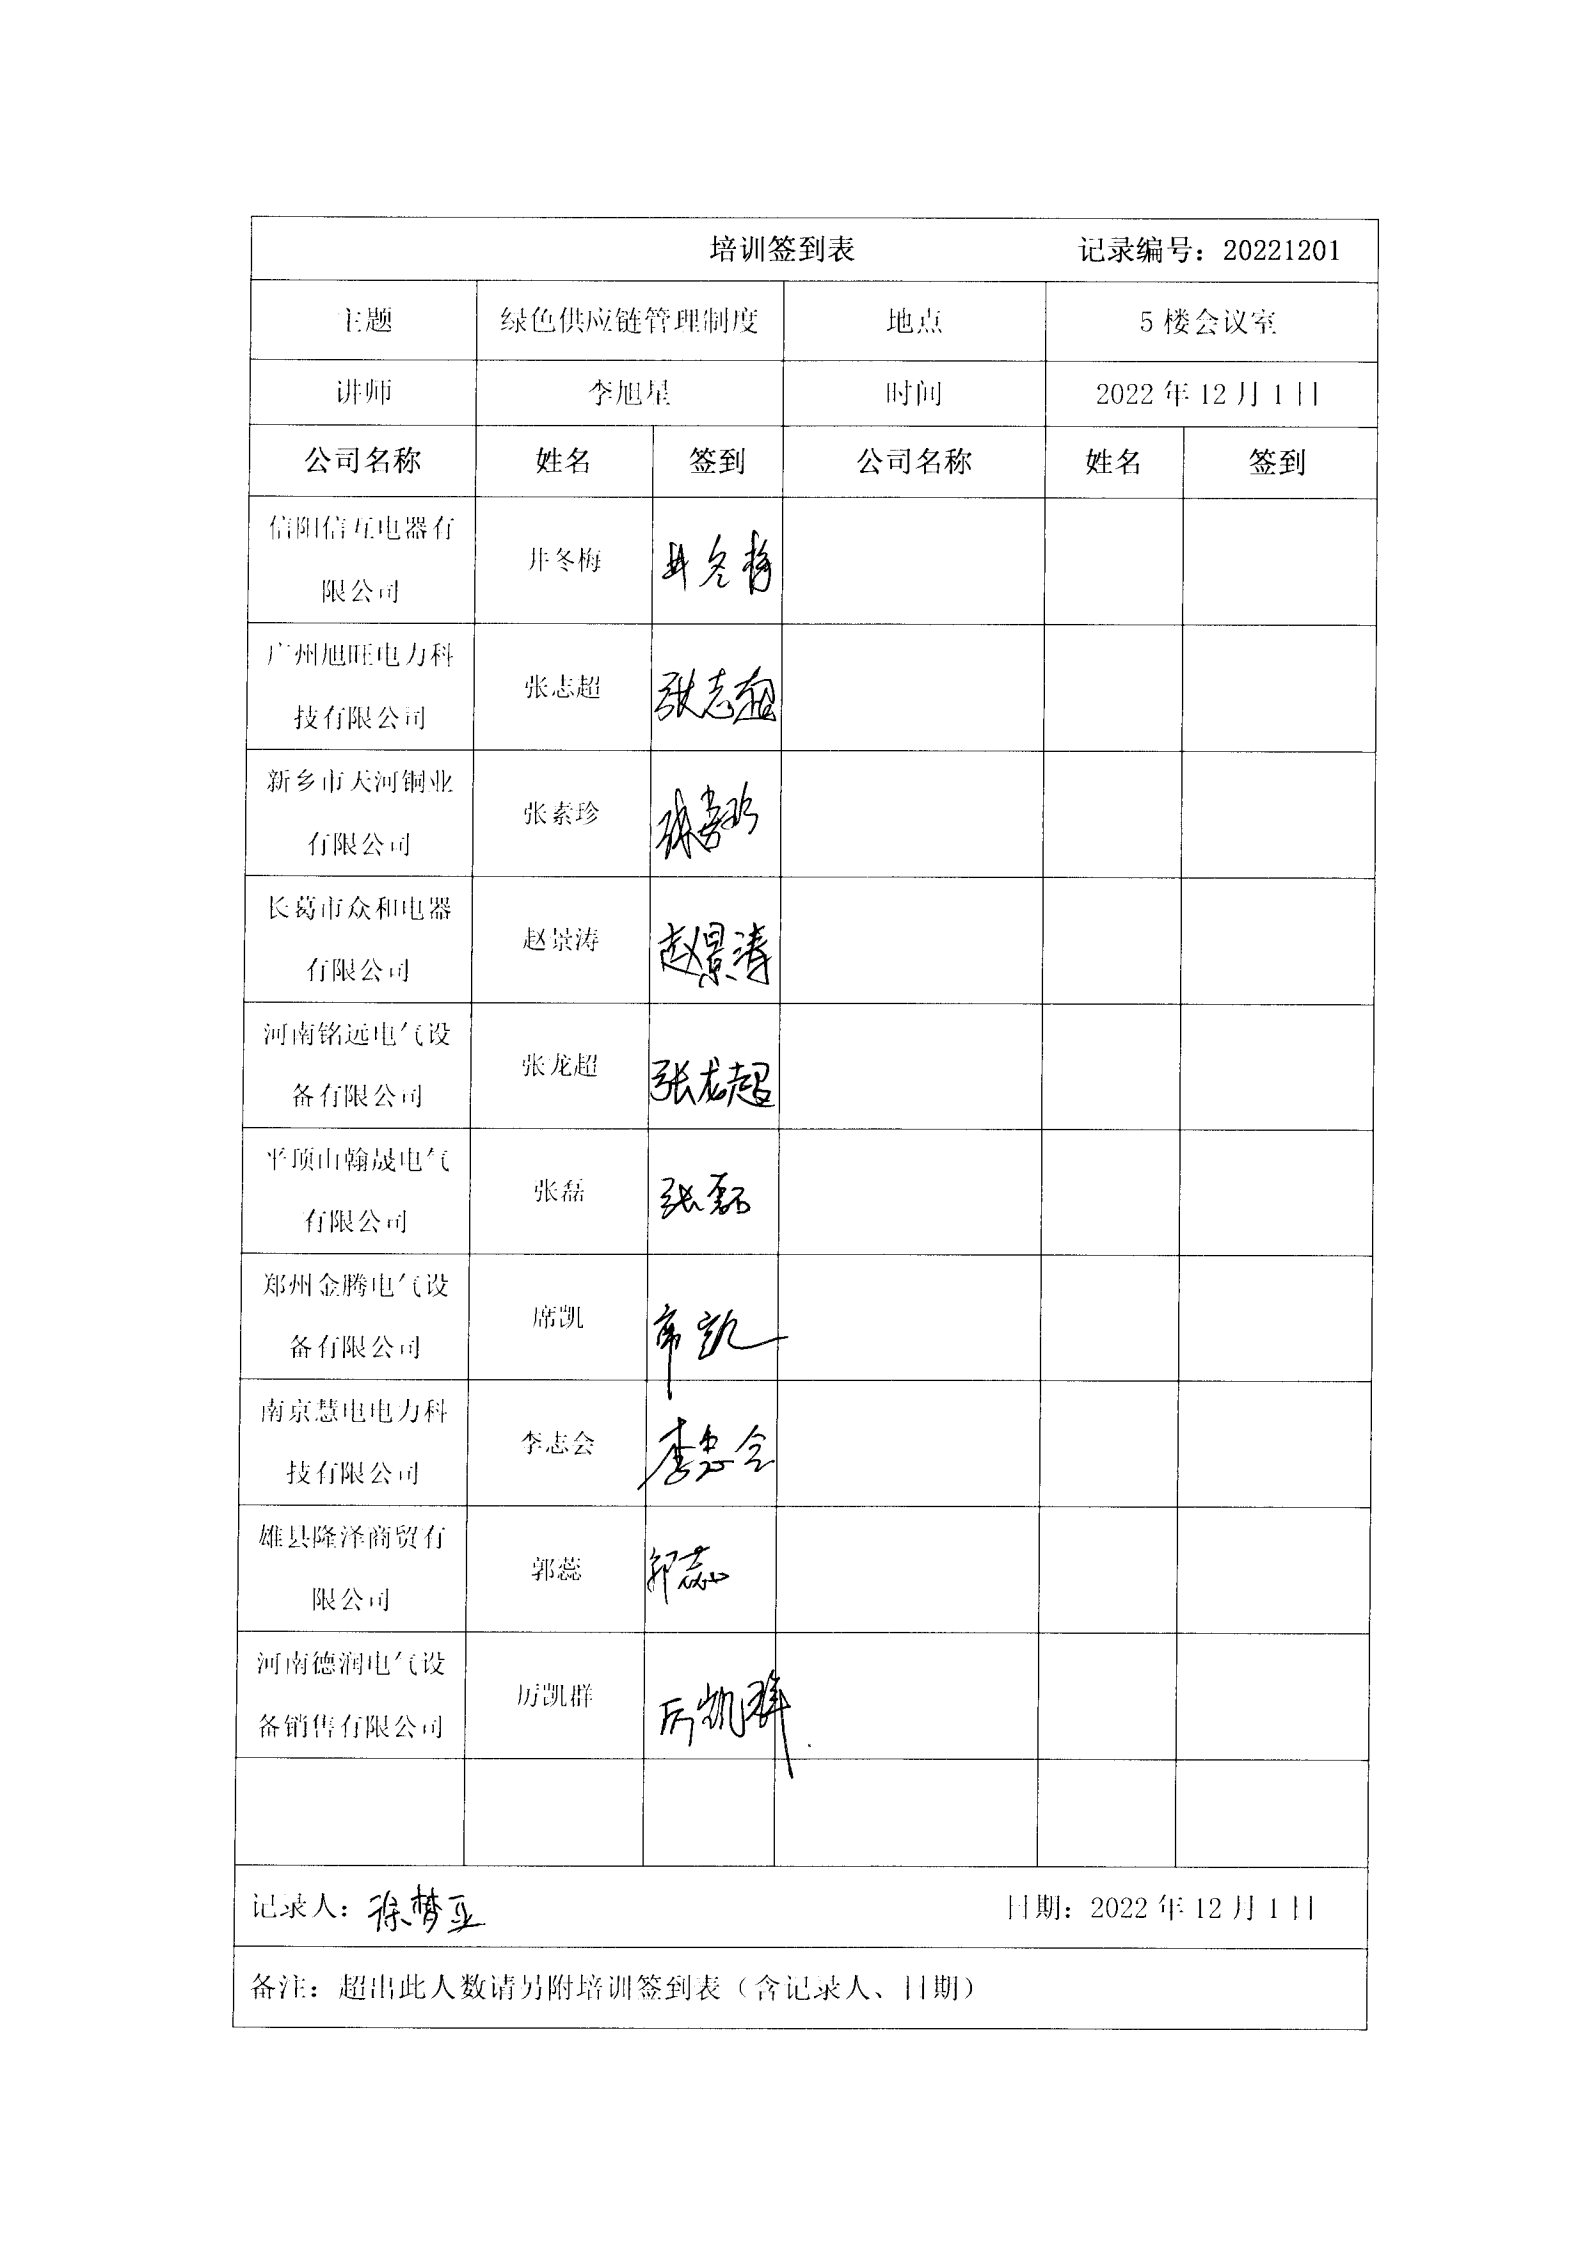 培训签到表 记录编号：20221201
主题 绿色供应链管理制度 地点 5 楼会议室
讲师 李旭星 时间 2022 年 12 月 1 日
公司名称 姓名 签到 公司名称 姓名 签到
信阳信互电器有
井冬梅 井冬梅
限公司
广州旭旺电力科
张志超 张志超
技有限公司
新乡市天河铜业
张素珍 张素珍
有限公司
长葛市众和电器
赵景涛 赵景涛
有限公司
河南铭远电气设
张龙超 张龙超
备有限公司
平顶山翰晟电气
张磊 张磊
有限公司
郑州金腾电气设
席凯 席凯
备有限公司
南京慧电电力科
李志会 李志会
技有限公司
雄县隆泽商贸有
郭蕊 郭蕊
限公司
河南德润电气设
厉凯群 厉凯群
备销售有限公司
记录人：徐梦亚 日期：2022 年 12 月 1 日
备注：超出此人数请另附培训签到表（含记录人、日期）